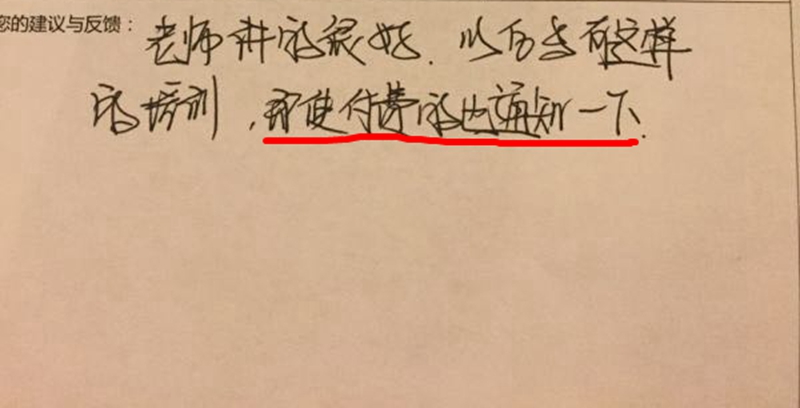 您的建议与反馈：老师讲的很好．以后多有这样
的培训，即使付费的也通知一下．